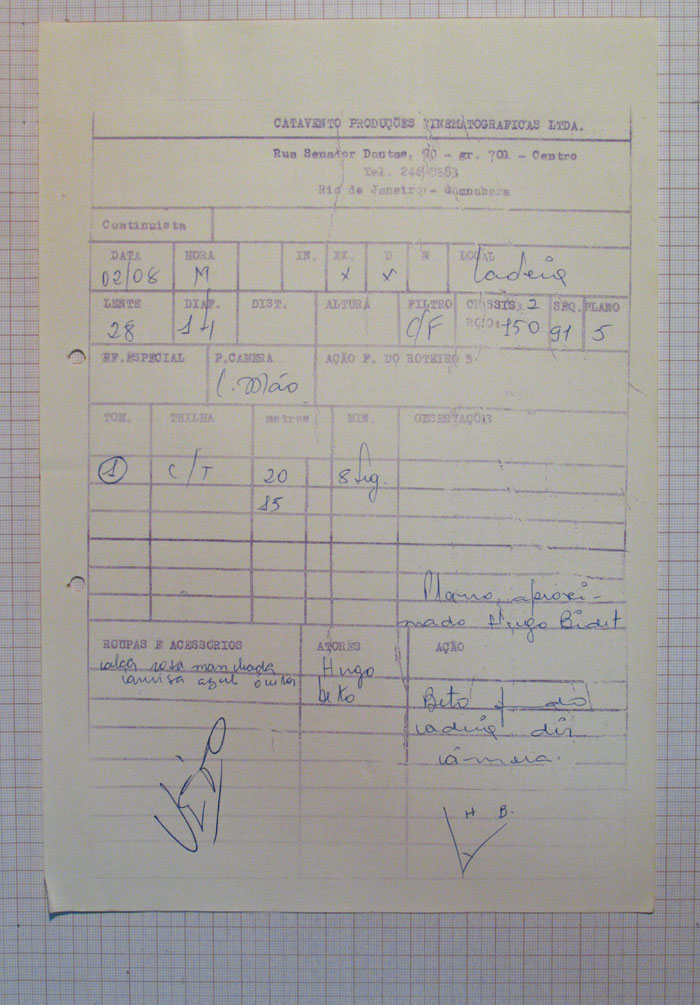 CATAVENTO PRODUÇÕES CINEMATOGRAFICAS LTDA.
Rua Senador Dantas, - gr. 701 - Centro
Tel.
Rio de Janeiro - Guanabara
Continuista
DATA HORA IN. EX. D N LOCAL
02/08 M x x Ladeira
LENTE DIAF. DIST. ALTURA FILTRO CHASSIS: 2 SEQ. PLANO
28 14 C/F ROLO: 150 91 5
EF.ESPECIAL P.CAMERA AÇÃO F. DO ROTEIRO S.
C. Mão
TOM. TRILHA metros MIN. OBSERVAÇÕES
1 C/T 20 8 seg.
15
Plano aproxi-
mado Hugo Bidet
ROUPAS E ACESSÓRIOS ATORES AÇÃO
calça rosa manchada Hugo
camisa azul beto
Beto
dir
câmera.
H B.